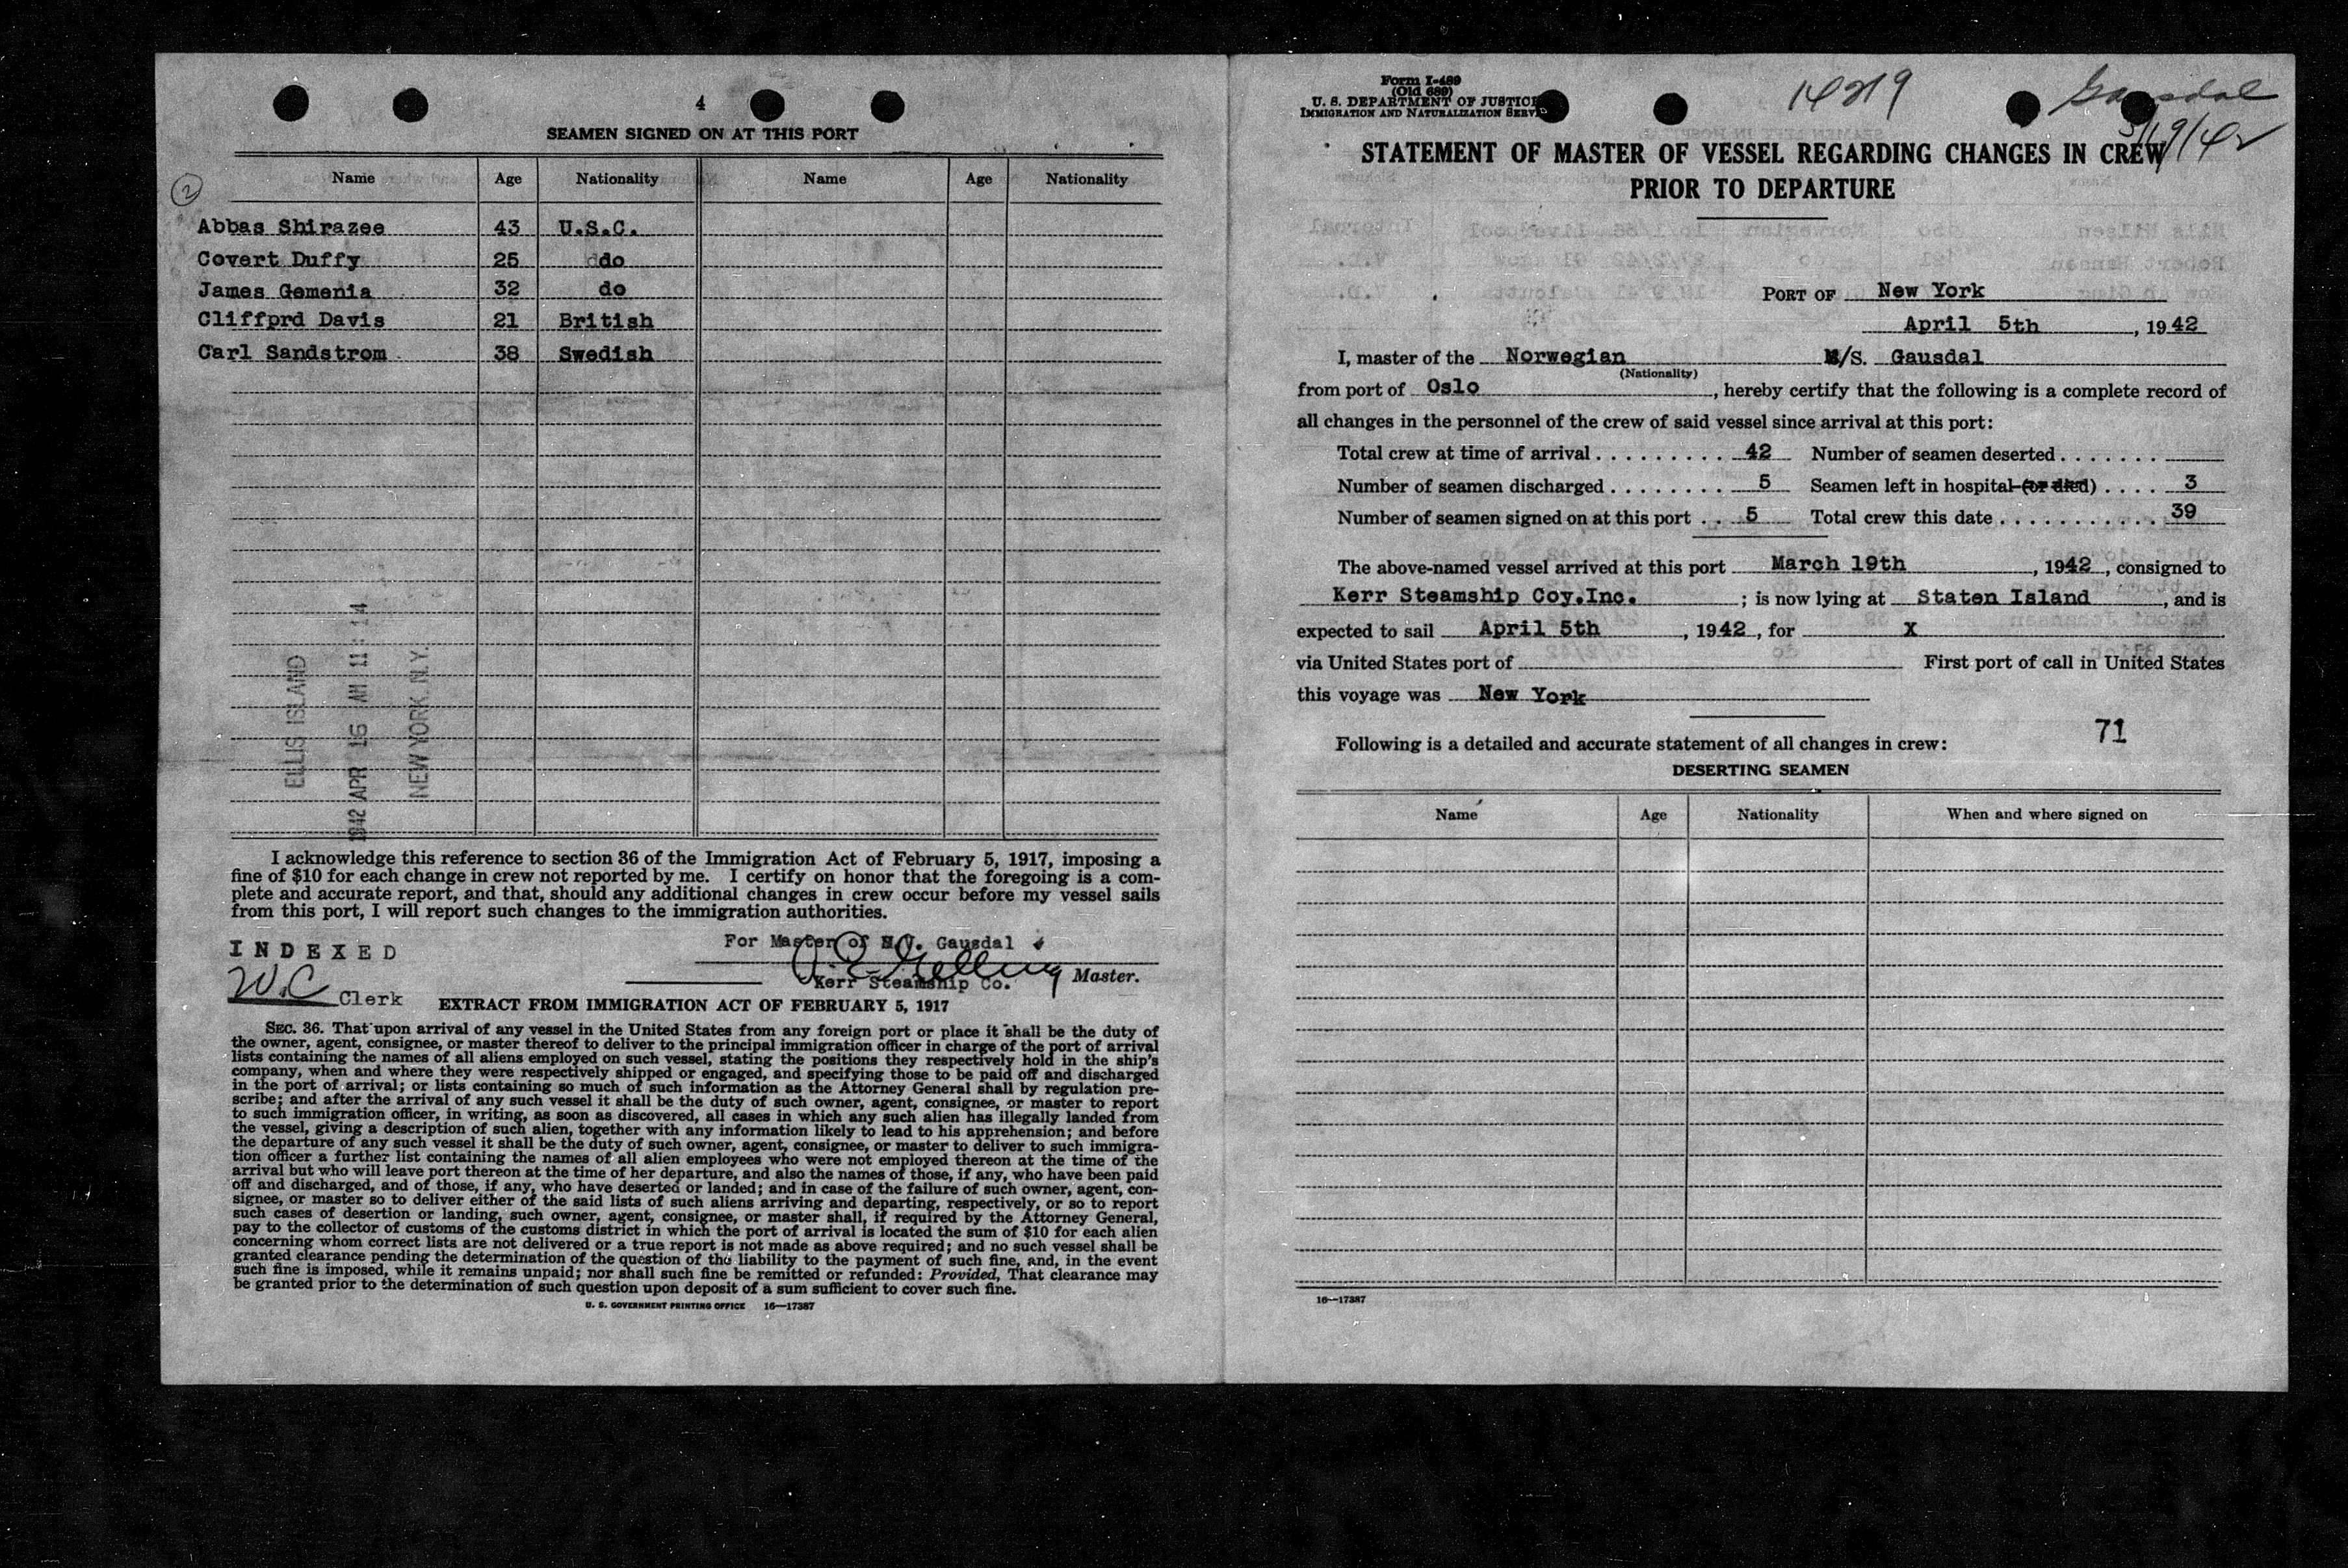 4
SEAMEN SIGNED ON AT THIS PORT
Name Age Nationality Name Age Nationality
2
Abbas Shirazee 43 U.S.C.
Covert Duffy 25 do
James Gemenia 32 do
Cliffprd Davis 21 British
Carl Sandstrom 38 Swedish
ELLIS ISLAND
1942 APR 16 AM 11:14
NEW YORK. N.Y.
I acknowledge this reference to section 36 of the Immigration Act of February 5, 1917, imposing a
fine of $10 for each change in crew not reported by me. I certify on honor that the foregoing is a com-
plete and accurate report, and that, should any additional changes in crew occur before my vessel sails
from this port, I will report such changes to the immigration authorities.
INDEXED
W.C Clerk
For Master of M.V. Gausdal
Master.
Kerr Steamship Co.
EXTRACT FROM IMMIGRATION ACT OF FEBRUARY 5, 1917
SEC. 36. That upon arrival of any vessel in the United States from any foreign port or place it shall be the duty of
the owner, agent, consignee, or master thereof to deliver to the principal immigration officer in charge of the port of arrival
lists containing the names of all aliens employed on such vessel, stating the positions they respectively hold in the ship's
company, when and where they were respectively shipped or engaged, and specifying those to be paid off and discharged
in the port of arrival; or lists containing so much of such information as the Attorney General shall by regulation pre-
scribe; and after the arrival of any such vessel it shall be the duty of such owner, agent, consignee, or master to report
to such immigration officer, in writing, as soon as discovered, all cases in which any such alien has illegally landed from
the vessel, giving a description of such alien, together with any information likely to lead to his apprehension; and before
the departure of any such vessel it shall be the duty of such owner, agent, consignee, or master to deliver to such immigra-
tion officer a further list containing the names of all alien employees who were not employed thereon at the time of the
arrival but who will leave port thereon at the time of her departure, and also the names of those, if any, who have been paid
off and discharged, and of those, if any, who have deserted or landed; and in case of the failure of such owner, agent, con-
signee, or master so to deliver either of the said lists of such aliens arriving and departing, respectively, or so to report
such cases of desertion or landing, such owner, agent, consignee, or master shall, if required by the Attorney General,
pay to the collector of customs of the customs district in which the port of arrival is located the sum of $10 for each alien
concerning whom correct lists are not delivered or a true report is not made as above required; and no such vessel shall be
granted clearance pending the determination of the question of the liability to the payment of such fine, and, in the event
such fine is imposed, while it remains unpaid; nor shall such fine be remitted or refunded: Provided, That clearance may
be granted prior to the determination of such question upon deposit of a sum sufficient to cover such fine.
U. S. GOVERNMENT PRINTING OFFICE 16—17387
Form I-489
(Old 689)
U. S. DEPARTMENT OF JUSTICE
IMMIGRATION AND NATURALIZATION SERVICE
14219
Gausdal
3/19/42
STATEMENT OF MASTER OF VESSEL REGARDING CHANGES IN CREW
PRIOR TO DEPARTURE
PORT OF New York
April 5th, 1942
I, master of the Norwegian M/S. Gausdal
(Nationality)
from port of Oslo, hereby certify that the following is a complete record of
all changes in the personnel of the crew of said vessel since arrival at this port:
Total crew at time of arrival . . . . . . . . . 42 Number of seamen deserted . . . . . . .
Number of seamen discharged . . . . . . . . 5 Seamen left in hospital (or died) . . . . 3
Number of seamen signed on at this port . . 5 Total crew this date . . . . . . . . . . . . 39
The above-named vessel arrived at this port March 19th, 1942, consigned to
Kerr Steamship Coy.Inc.; is now lying at Staten Island, and is
expected to sail April 5th, 1942, for X
via United States port of First port of call in United States
this voyage was New York
71
Following is a detailed and accurate statement of all changes in crew:
DESERTING SEAMEN
Name Age Nationality When and where signed on
16—17387